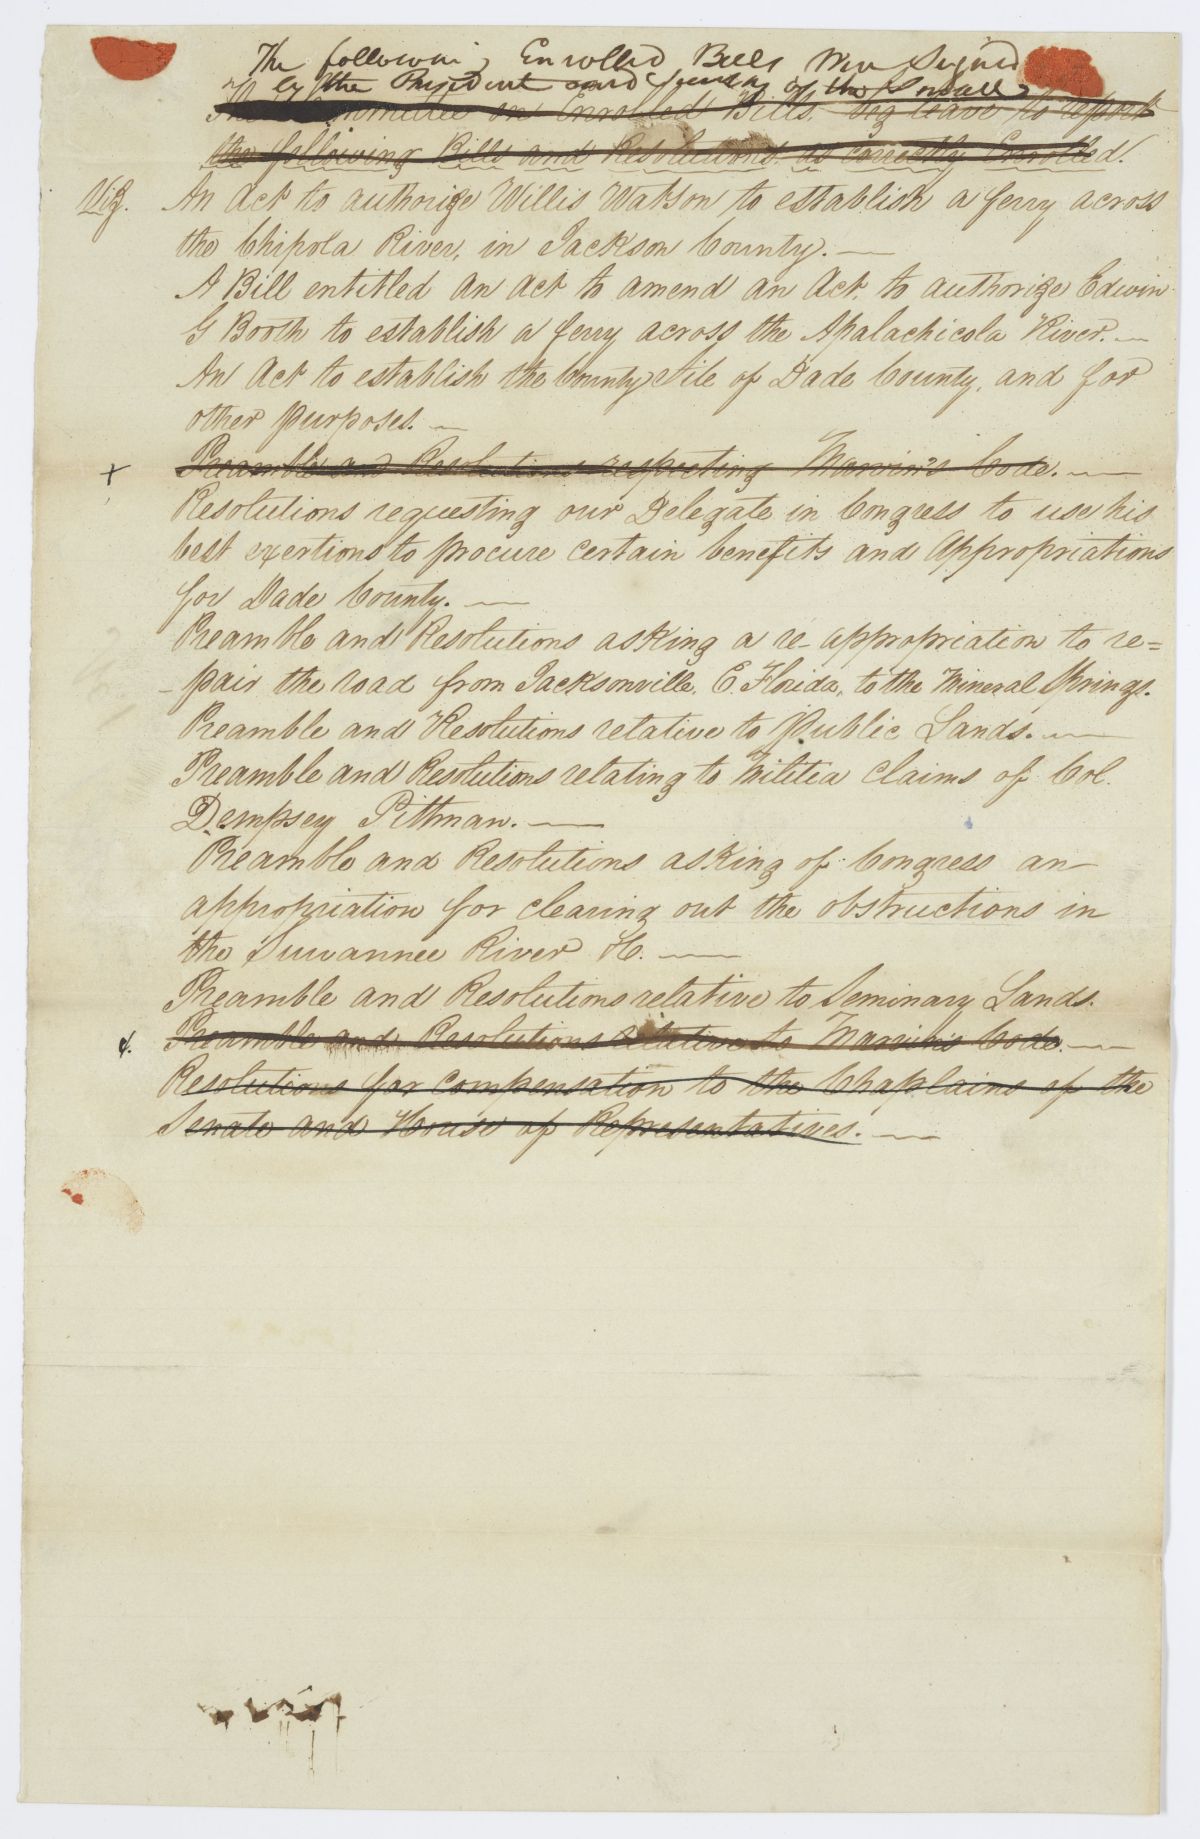 The following Enrolled Bills were Signed
by the President and Secretary of the Senate
The Committee on Enrolled Bills, beg leave to report
the following Bills and Resolutions as correctly Enrolled.
Viz. An Act to authorize Willis Watson to establish a ferry across
the Chipola River, in Jackson County. —
A Bill entitled An Act to amend an Act, to authorize Edwin
G Booth to establish a ferry across the Apalachicola River. —
An Act to establish the County Site of Dade County, and for
other purposes. —
+ Preamble and Resolutions respecting Marvin's Code. —
Resolutions requesting our Delegate in Congress to use his
best exertions to procure certain benefits and appropriations
for Dade County. —
Preamble and Resolutions asking a re-appropriation to re=
-pair the road from Jacksonville, E. Florida, to the Mineral Springs.
Preamble and Resolutions relative to Public Lands. —
Preamble and Resolutions relating to Militia Claims of Col.
Dempsey Pittman. —
Preamble and Resolutions asking of Congress an
appropriation for clearing out the obstructions in
the Suwannee River &c. —
Preamble and Resolutions relative to Seminary Lands.
Preamble and Resolutions relative to Marvin's Code. —
Resolutions for compensation to the Chaplains of the
Senate and House of Representatives. —